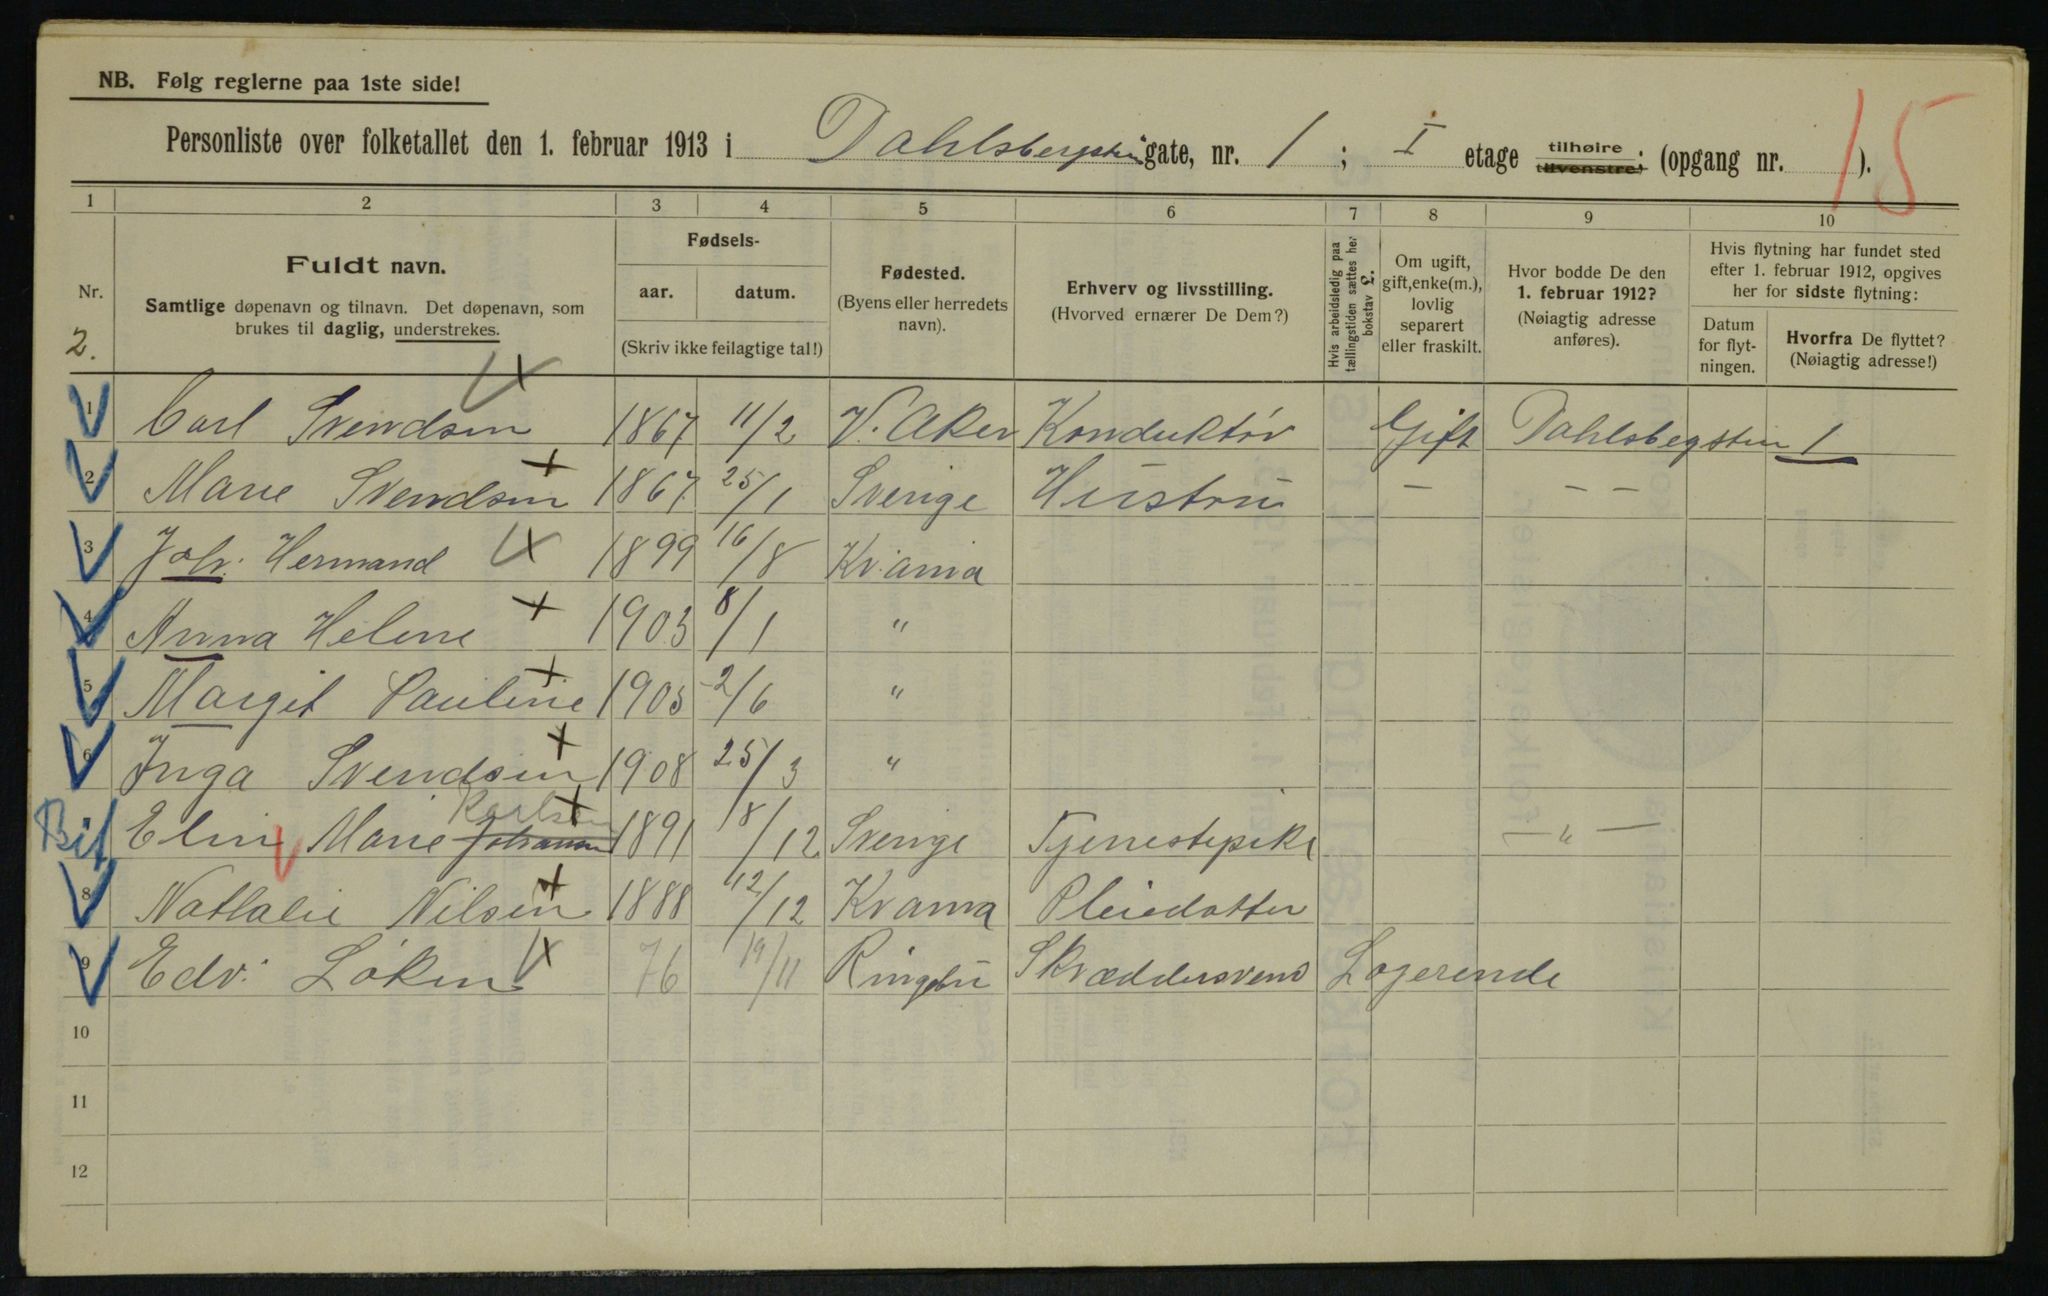 NB. Følg reglerne paa 1ste side!
Personliste over folketallet den 1. februar 1913 i Dahlsbergstien gate, nr. 1 ; I etage tilhøire tilvenstre; (opgang nr. ).
15
1 2 3 4 5 6 7 8 9 10
Nr.
2.
Fuldt navn.
Samtlige døpenavn og tilnavn. Det døpenavn, som
brukes til daglig, understrekes.
Fødsels-
aar. datum.
(Skriv ikke feilagtige tal!)
Fødested.
(Byens eller herredets
navn).
Erhverv og livsstilling.
(Hvorved ernærer De Dem?)
Hvis arbeidsledig paa
tællingstiden sættes her
bokstav £.
Om ugift,
gift, enke(m.),
lovlig
separert
eller fraskilt.
Hvor bodde De den
1. februar 1912?
(Nøiagtig adresse
anføres).
Hvis flytning har fundet sted
efter 1. februar 1912, opgives
her for sidste flytning:
Datum
for flyt-
ningen.
Hvorfra De flyttet?
(Nøiagtig adresse!)
1 Carl Svendsen 1867 11/2 V. Aker Konduktør Gift Dahlsbegstien 1
2 Marie Svendsen 1867 25/1 Sverige Hustru — — —
3 Joh. Hermand 1899 16/8 Kr.ania
4 Anna Helene 1903 8/1 "
5 Margit Pauline 1905 2/6 "
6 Inga Svendsen 1908 25/3 "
Bit Elin Marie Johansen Karlsen 1891 18/12 Sverige Tjenestepike — " —
8 Nathalie Nilsen 1888 12/12 Kr ania Pleiedatter
9 Edv. Løken 76 19/11 Ringebu Skræddersvend Logerende
10
11
12